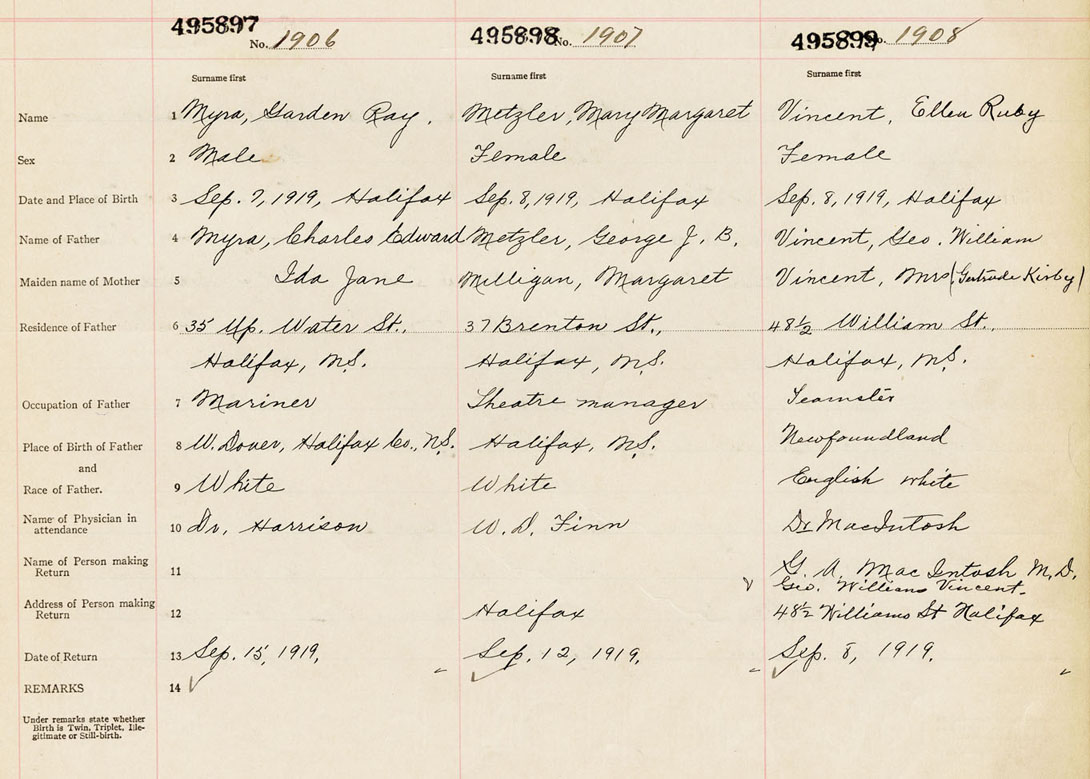 495897 495898 495899
No. 1906 No. 1907 No. 1908
Surname first Surname first Surname first
Name 1 Myra, Garden Ray. Metzler, Mary Margaret Vincent, Ellen Ruby
Sex 2 Male Female Female
Date and Place of Birth 3 Sep. 7, 1919, Halifax Sep. 8, 1919, Halifax Sep. 8, 1919, Halifax
Name of Father 4 Myra, Charles Edward Metzler, George J. B. Vincent, Geo. William
Maiden name of Mother 5 Ida Jane Milligan, Margaret Vincent, Mrs (Gertrude Kirby)
Residence of Father 6 35 Up. Water St., 37 Brenton St., 48½ William St.,
Halifax, N.S. Halifax, N.S. Halifax, N.S.
Occupation of Father 7 Mariner Theatre manager Teamster
Place of Birth of Father 8 W. Dover, Halifax Co., N.S. Halifax, N.S. Newfoundland
and
Race of Father. 9 White White English white
Name of Physician in
attendance 10 Dr. Harrison W. D. Finn Dr MacIntosh
Name of Person making
Return 11 G. A. MacIntosh M.D.
Geo. William Vincent.
Address of Person making
Return 12 Halifax 48½ Williams St Halifax
Date of Return 13 Sep. 15, 1919. Sep. 12, 1919. Sep. 8, 1919.
REMARKS 14
Under remarks state whether
Birth is Twin, Triplet, Ille-
gitimate or Still-birth.